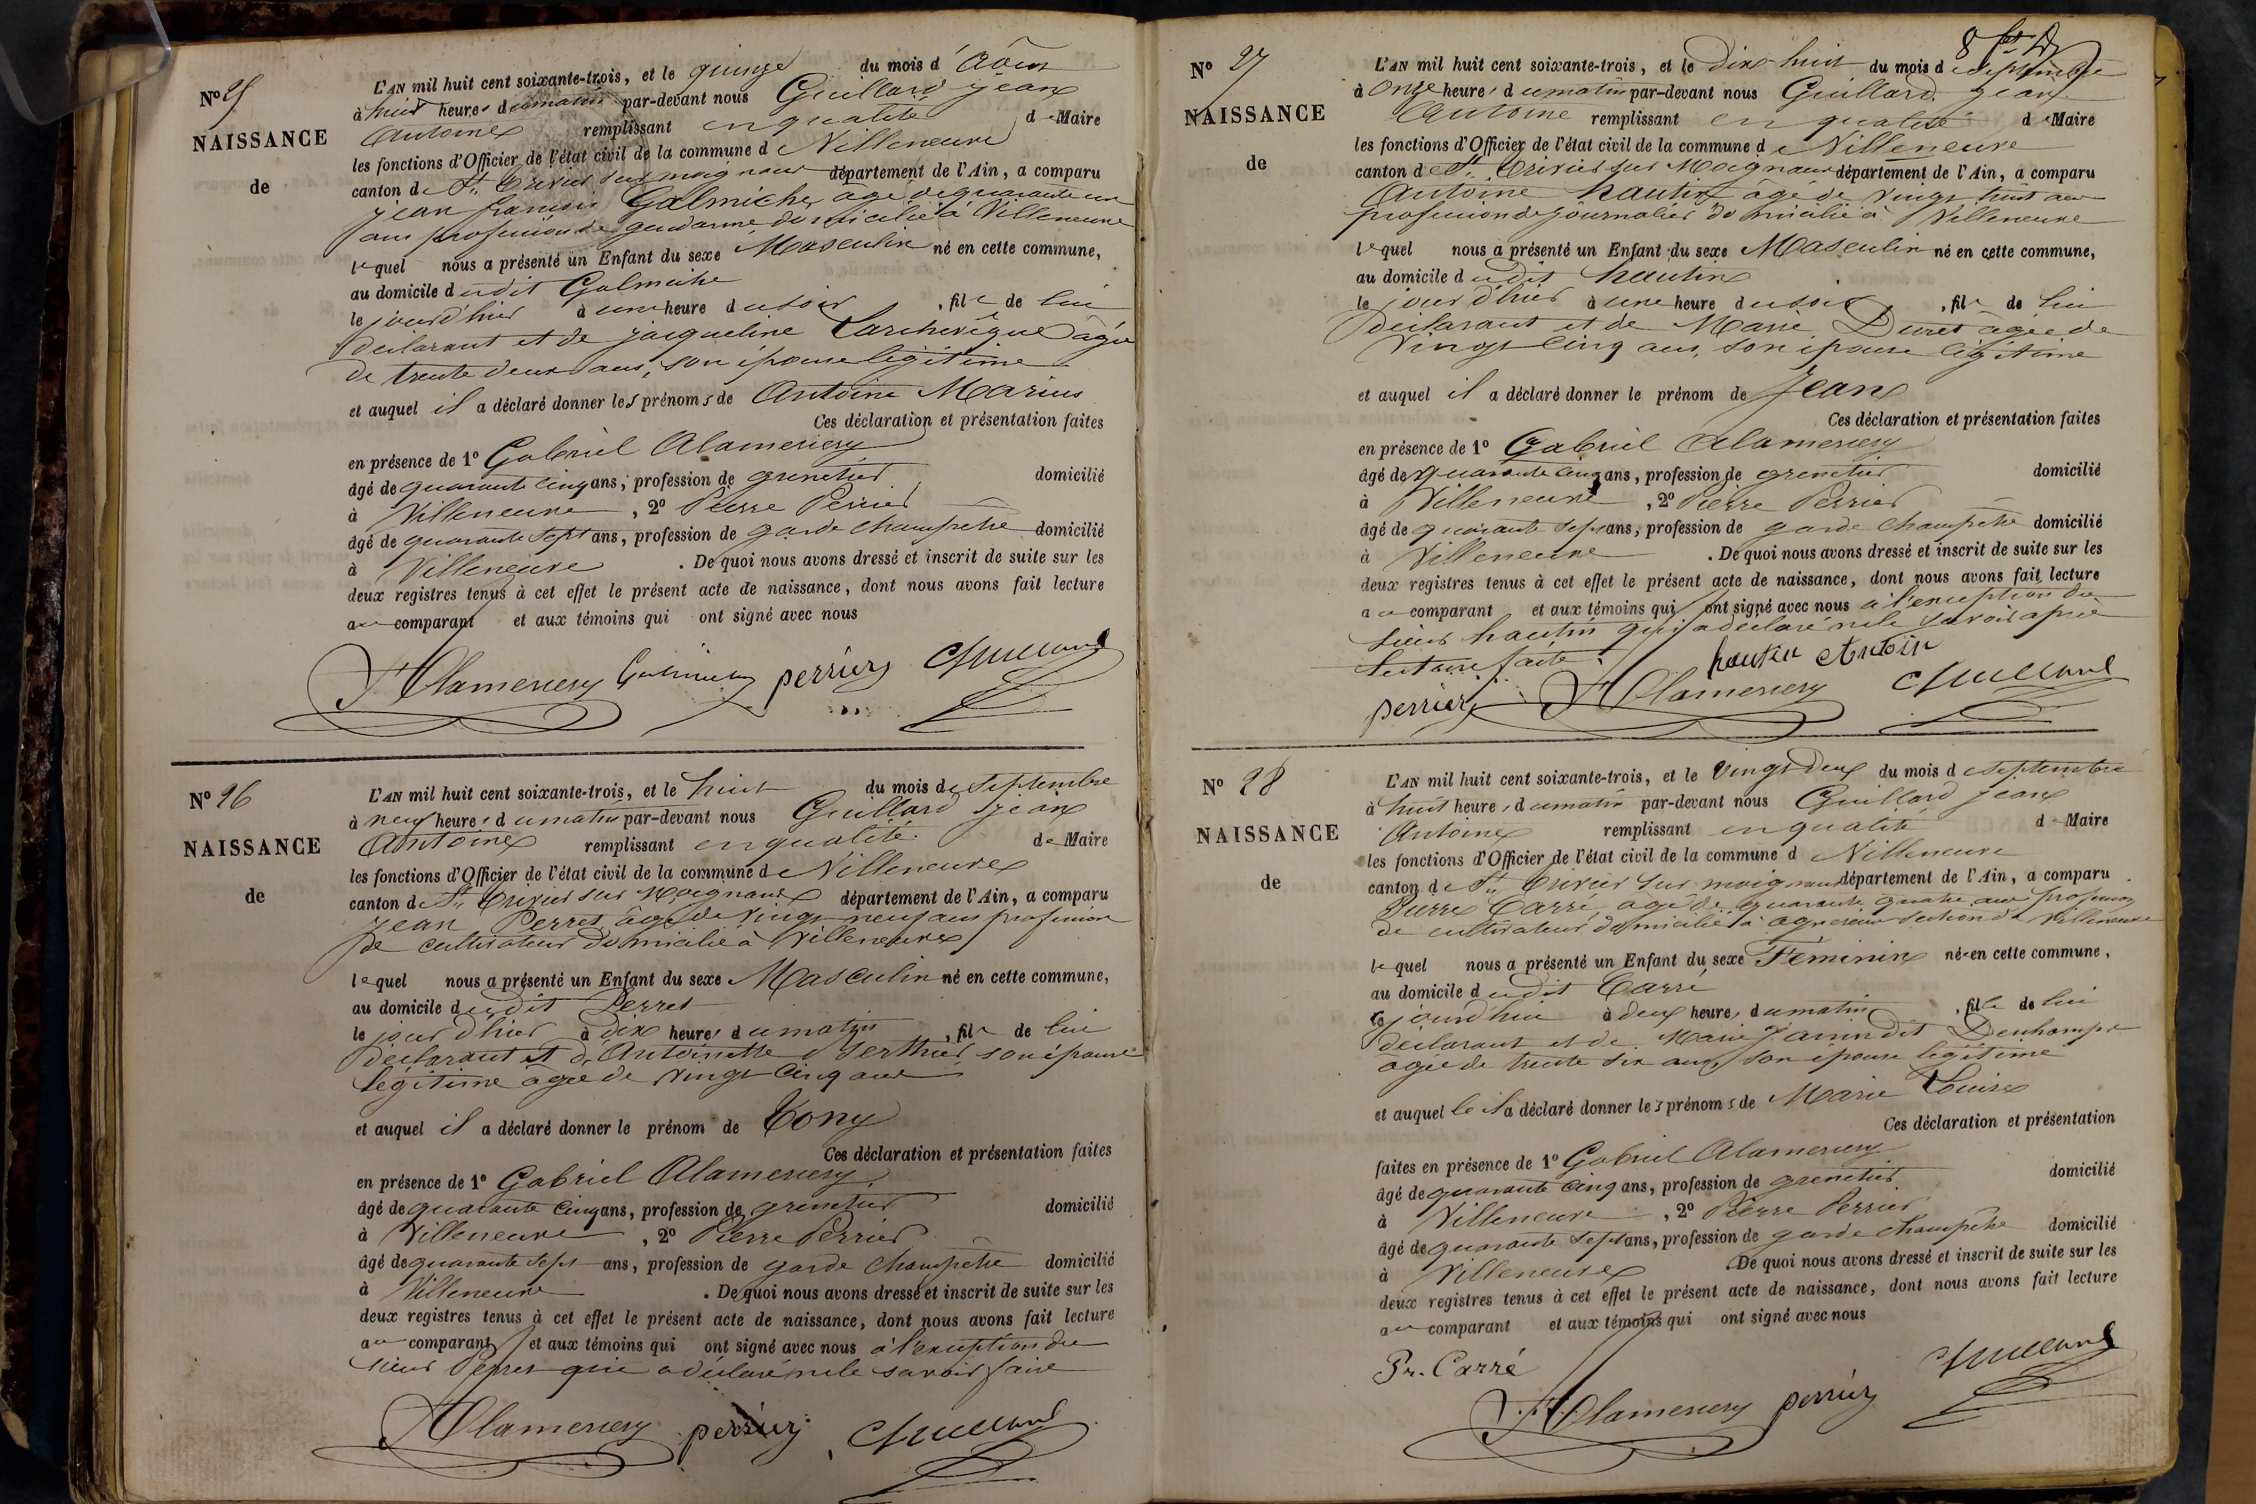 N° 25
NAISSANCE
de
L'AN mil huit cent soixante-trois, et le quinze du mois d'Août
à huit heures du matin par-devant nous Guillard Jean
Antoine remplissant en qualité de Maire
les fonctions d'Officier de l'état civil de la commune de Villeneuve
canton de St Trivier sur Moignans département de l'Ain, a comparu
Jean françois Galmiche, âgé de quarante un
ans profession de gendarme, domicilié à Villeneuve
lequel nous a présenté un Enfant du sexe Masculin né en cette commune,
au domicile dudit Galmiche
le jourd'hier à une heure du soir, fils de lui
déclarant et de jacqueline Larchevêque âgée
de trente deux ans, son épouse légitime
et auquel il a déclaré donner les prénoms de Antoine Marius
Ces déclaration et présentation faites
en présence de 1° Gabriel Alamercery
âgé de quarante cinq ans, profession de grenetier domicilié
à Villeneuve, 2° Pierre Perrier
âgé de quarante sept ans, profession de garde champêtre domicilié
à Villeneuve. De quoi nous avons dressé et inscrit de suite sur les
deux registres tenus à cet effet le présent acte de naissance, dont nous avons fait lecture
au comparant et aux témoins qui ont signé avec nous
Alamercery Galmiche perrier Guillard
N° 26
NAISSANCE
de
L'AN mil huit cent soixante-trois, et le huit du mois de Septembre
à neuf heures du matin par-devant nous Guillard Jean
Antoine remplissant en qualité de Maire
les fonctions d'Officier de l'état civil de la commune de Villeneuve
canton de St Trivier sur Moignans département de l'Ain, a comparu
Jean Perret, âgé de vingt neuf ans profession
de cultivateur domicilié à Villeneuve
lequel nous a présenté un Enfant du sexe Masculin né en cette commune,
au domicile dudit Perret
le jour d'hier à dix heures du matin, fils de lui
déclarant et d'Antoinette Berthier son épouse
légitime âgée de vingt cinq ans
et auquel il a déclaré donner le prénom de Tony
Ces déclaration et présentation faites
en présence de 1° Gabriel Alamercery
âgé de quarante cinq ans, profession de grenetier domicilié
à Villeneuve, 2° Pierre Perrier
âgé de quarante sept ans, profession de garde champêtre domicilié
à Villeneuve. De quoi nous avons dressé et inscrit de suite sur les
deux registres tenus à cet effet le présent acte de naissance, dont nous avons fait lecture
au comparant et aux témoins qui ont signé avec nous à l'exception du
sieur Perret qui a déclaré ne le savoir faire
Alamercery perrier Guillard
N° 27
NAISSANCE
de
L'AN mil huit cent soixante-trois, et le Dix huit du mois de Septembre
à Onze heures du matin par-devant nous Guillard Jean
Antoine remplissant en qualité de Maire
les fonctions d'Officier de l'état civil de la commune de Villeneuve
canton de St Trivier sur Moignans département de l'Ain, a comparu
Antoine hautin âgé de vingt huit ans
profession de journalier domicilié à Villeneuve
lequel nous a présenté un Enfant du sexe Masculin né en cette commune,
au domicile dudit hautin
le jour d'hier à une heure du soir, fils de lui
déclarant et de Marie Duret âgée de
vingt cinq ans, son épouse légitime
et auquel il a déclaré donner le prénom de Jean
Ces déclaration et présentation faites
en présence de 1° Gabriel Alamercery
âgé de quarante cinq ans, profession de grenetier domicilié
à Villeneuve, 2° Pierre Perrier
âgé de quarante sept ans, profession de garde champêtre domicilié
à Villeneuve. De quoi nous avons dressé et inscrit de suite sur les
deux registres tenus à cet effet le présent acte de naissance, dont nous avons fait lecture
au comparant et aux témoins qui ont signé avec nous à l'exception du
sieur hautin qui a déclaré ne le savoir après
lecture faite.
hautin Antoin
perrier Alamercery Guillard
N° 28
NAISSANCE
de
L'AN mil huit cent soixante-trois, et le vingt deux du mois de Septembre
à huit heures du matin par-devant nous Guillard Jean
Antoine remplissant en qualité de Maire
les fonctions d'Officier de l'état civil de la commune d Villeneuve
canton de St Trivier sur moignans département de l'Ain, a comparu
Pierre Carré âgé de quarante quatre ans profession
de cultivateur domicilié à agnereins section de Villeneuve
lequel nous a présenté un Enfant du sexe Féminin née en cette commune,
au domicile dudit Carré
ce jourd'hui à deux heures du matin, fille de lui
déclarant et de Marie Janin dit Deschamps
âgée de trente six ans, son épouse légitime
et auquel le il a déclaré donner les prénoms de Marie Louise
Ces déclaration et présentation
faites en présence de 1° Gabriel Alamercery
âgé de quarante cinq ans, profession de grenetier domicilié
à Villeneuve, 2° Pierre Perrier
âgé de quarante sept ans, profession de garde champêtre domicilié
à Villeneuve. De quoi nous avons dressé et inscrit de suite sur les
deux registres tenus à cet effet le présent acte de naissance, dont nous avons fait lecture
au comparant et aux témoins qui ont signé avec nous
Pr. Carré Guillard
Alamercery perrier